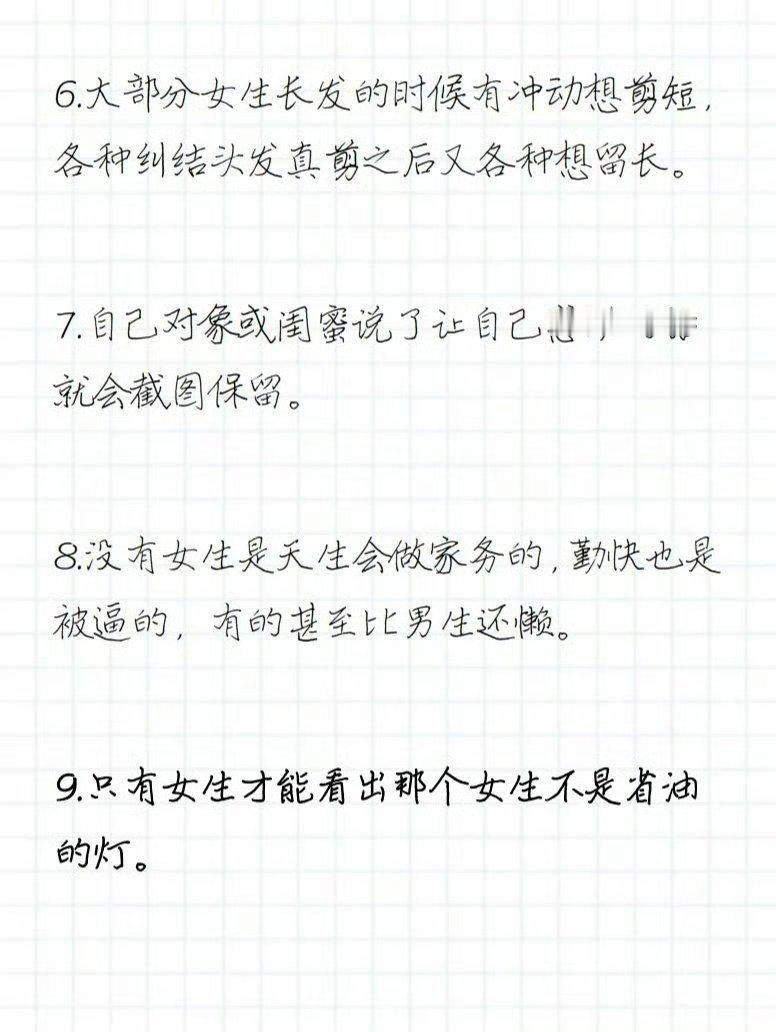 6.大部分女生长发的时候有冲动想剪短,
各种纠结头发真剪之后又各种想留长。
7.自己对象或闺蜜说了让自己
就会截图保留。
8.没有女生是天生会做家务的,勤快也是
被逼的,有的甚至比男生还懒。
9.只有女生才能看出那个女生不是省油
的灯。